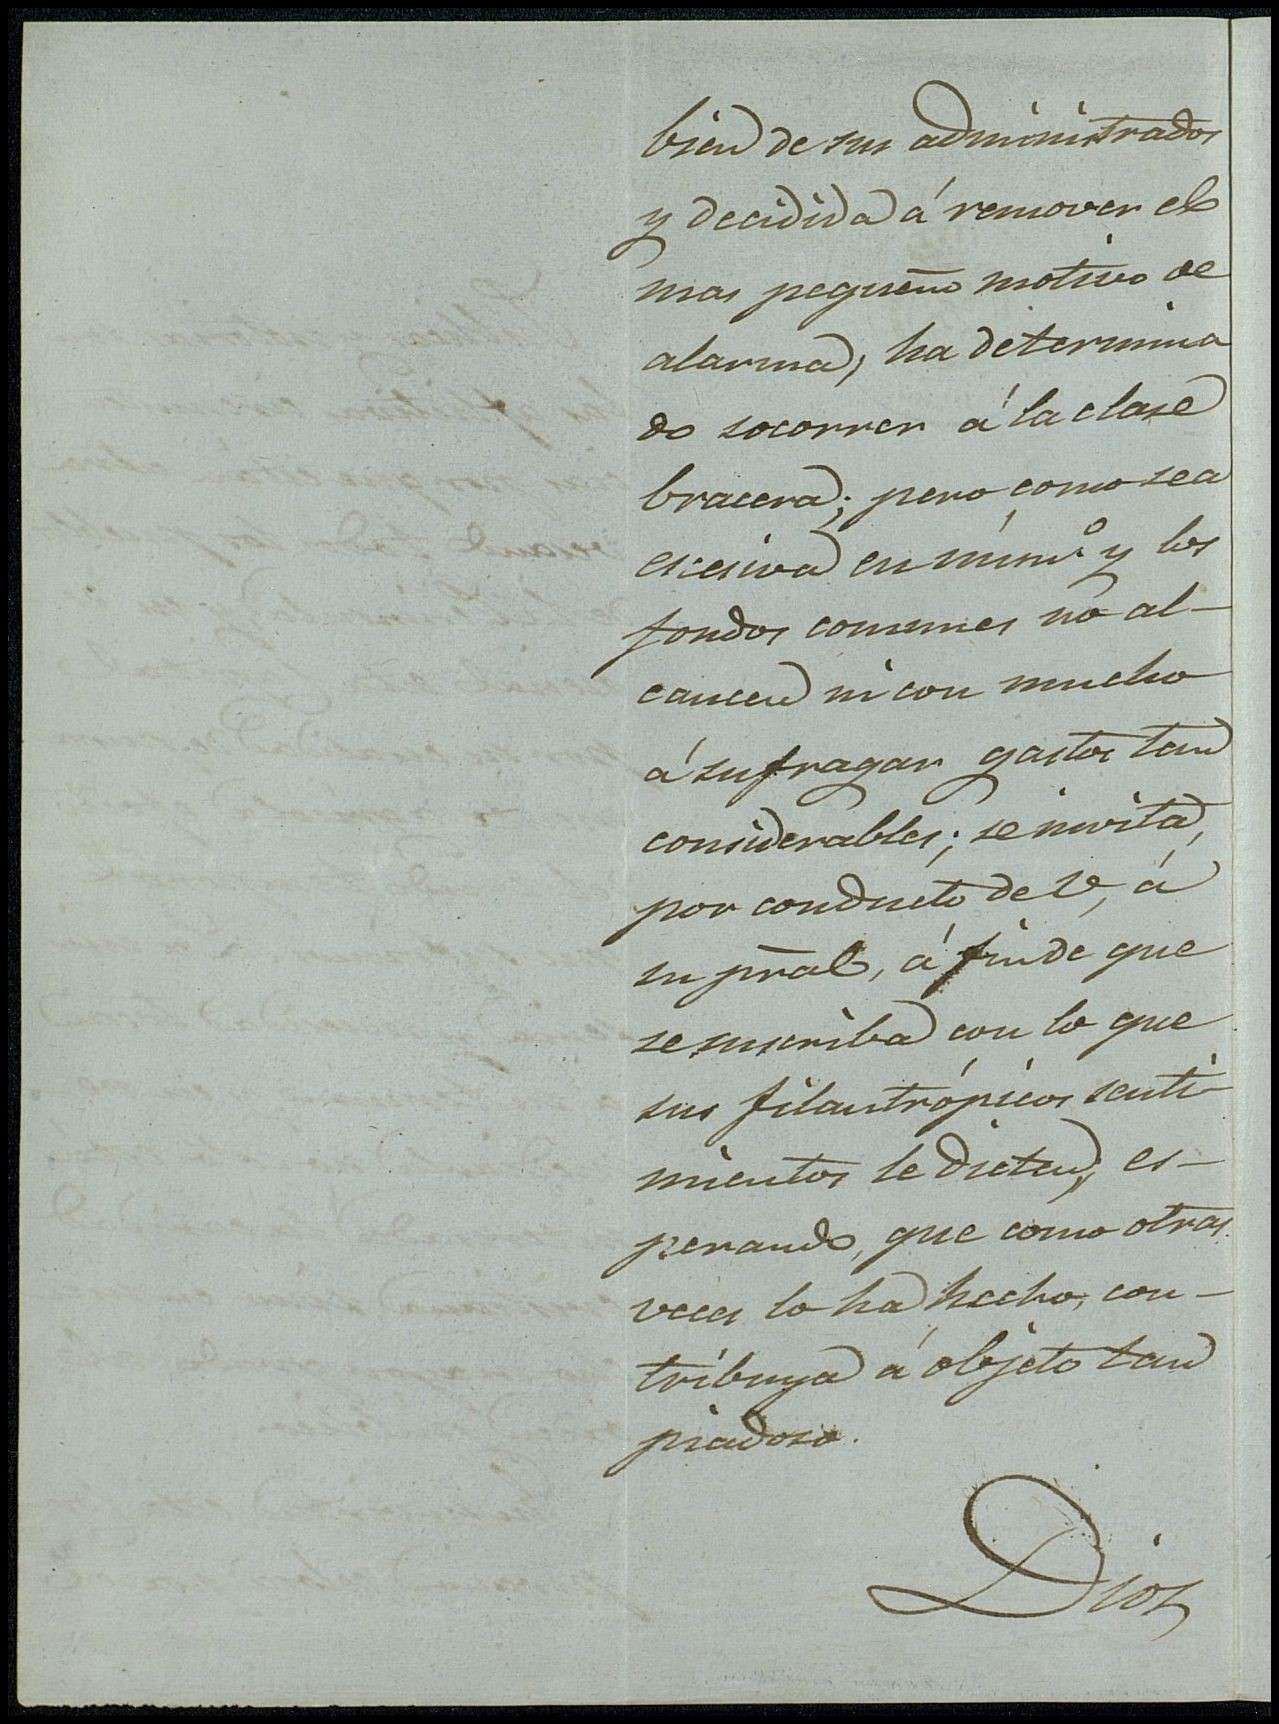 bien de sus administrados
y decidida á remover el
mas pequeño motivo de
alarma, ha determina
do socorrer á la clase
bracera; pero como sea
escesiva en núm.º y los
fondos comunes no al-
cancen ni con mucho
á sufragar gastos tan
considerables; se invita,
por conducto de V, á
su pral, á fin de que
se suscriba con lo que
sus filantrópicos senti-
mientos le dicten, es-
perando, que como otras
veces lo ha hecho, con-
tribuya á objeto tan
piadoso.
Dios